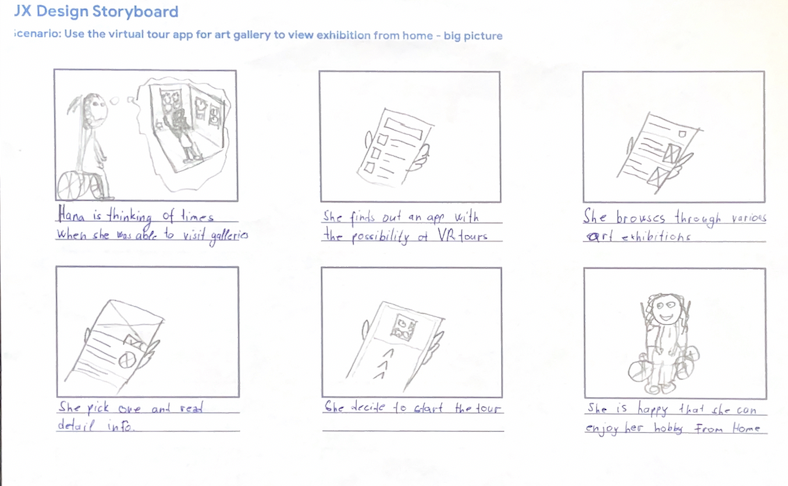 JX Design Storyboard
cenario: Use the virtual tour app for art gallery to view exhibition from home - big picture
Hana is thinking of times
when she was able to visit gallerio
She finds out an app with
the possibility of VR tours
She browses through various
art exhibitions
She pick one and read
detail info.
She decide to start the tour
She is happy that she can
enjoy her hobby From Home